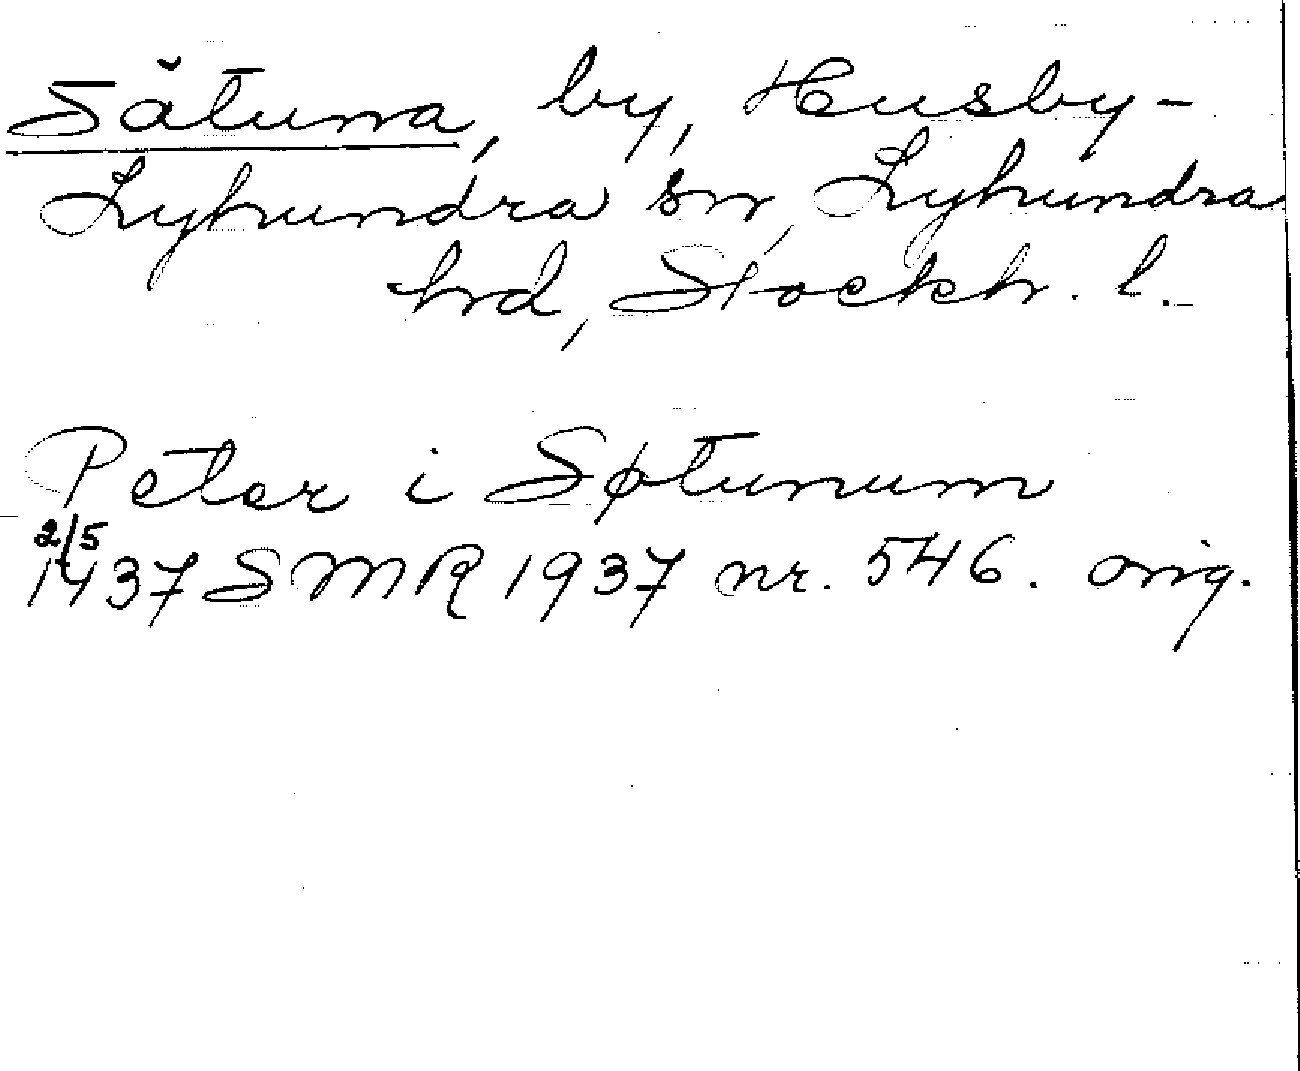 Sätuna, by, Husby-
Lyhundra sn, Lyhundra
hrd, Stockh. l.
Peter i Søtunum
2/5
1437 SMR 1937 nr. 546. orig.